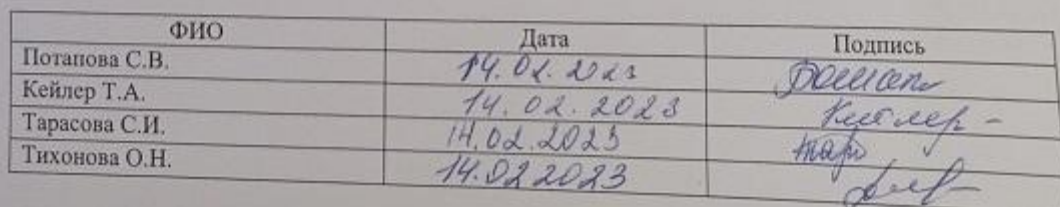 ФИО Дата Подпись
Потапова С.В. 14.02.2023
Кейлер Т.А. 14.02.2023 Кейлер
Тарасова С.И. 14.02.2023 Тар
Тихонова О.Н. 14.02.2023